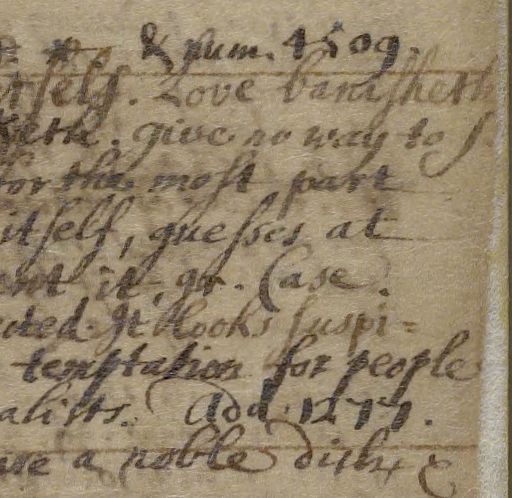 & num. 4509.
rself. Love banisheth
keth. give no way to s
for the most part
itself, guesses at
ent it, qr. Case.
cted. It looks suspi=
temptation for people
alists. Add. 1277.
are a noble dish